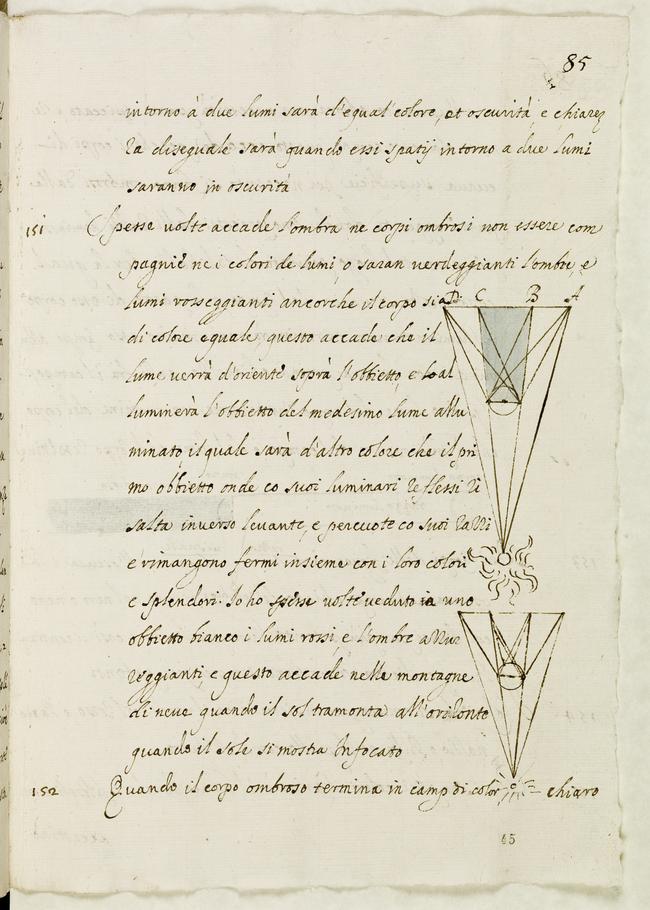 85
intorno à due lumi sarà d'egual colore, et oscurità, e chiarez
za diseguale sarà quando essi spatij intorno a due lumi
saranno in oscurità
151 Spesse volte accade l'ombra ne corpi ombrosi non essere com
pagnie ne i colori de lumi, o saran verdeggianti l'ombre, e
lumi rosseggianti ancorche il corpo sia D C B A
di colore eguale, questo accade che il
lume verrà d'oriente soprà l'obbietto, e lo al
luminerà l'obbietto del medesimo lume allu
minato, il quale sarà d'altro colore che il pri
mo obbietto onde co suoi luminari reflessi ri
salta inverso levante, e percuote co suoi razzi
e rimangono fermi insieme con i loro colori
e splendori. Io ho spesse volte veduto in uno
obbietto bianco i lumi rossi, e l'ombre azzur
reggianti, e questo accade nelle montagne
di neve quando il sol tramonta all'orizonte
quando il sole si mostra infocato
152 Quando il corpo ombroso termina in camp di color chiaro
45